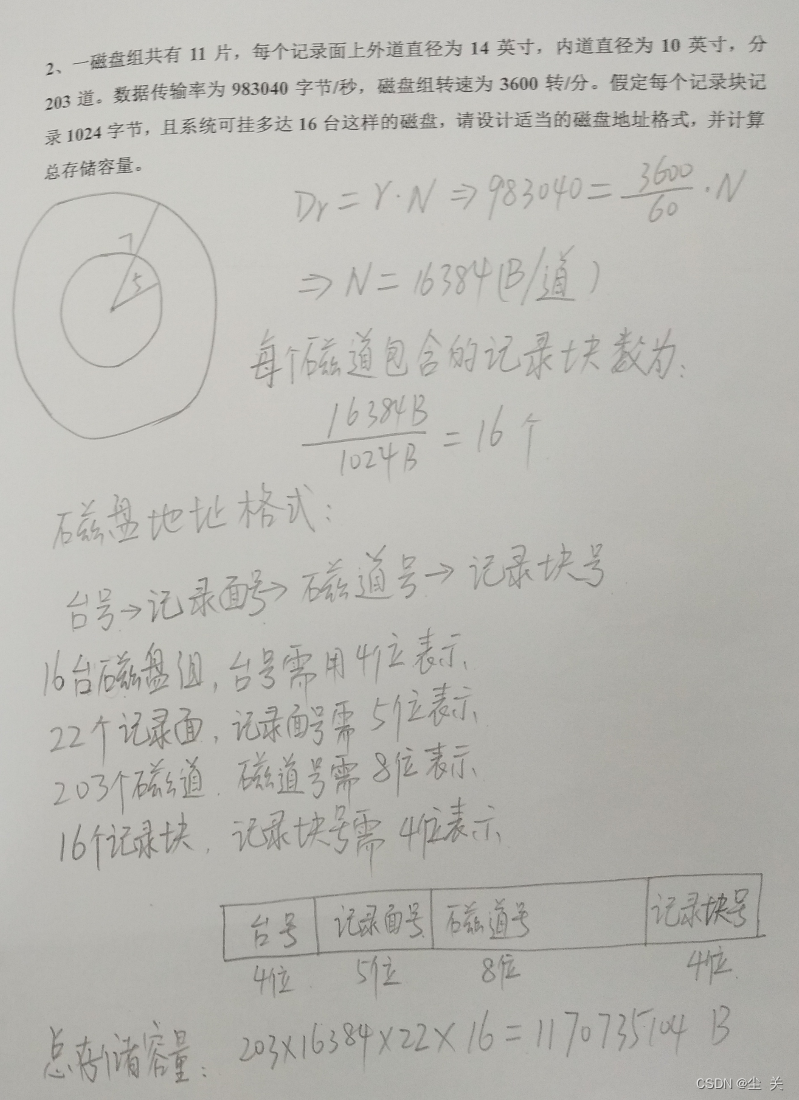 2、一磁盘组共有 11 片，每个记录面上外道直径为 14 英寸，内道直径为 10 英寸，分
203 道。数据传输率为 983040 字节/秒，磁盘组转速为 3600 转/分。假定每个记录块记
录 1024 字节，且系统可挂多达 16 台这样的磁盘，请设计适当的磁盘地址格式，并计算
总存储容量。
Dr = r·N ⇒ 983040 = 3600/60 · N
7
5
⇒ N = 16384(B/道)
每个磁道包含的记录块数为：
16384B/1024B = 16 个
磁盘地址格式：
台号→记录面号→磁道号→记录块号
16台磁盘组，台号需用4位表示
22个记录面，记录面号需5位表示
203个磁道．磁道号需8位表示
16个记录块，记录块号需4位表示
台号 记录面号 磁道号 记录块号
4位 5位 8位 4位
总存储容量：203×16384×22×16=1170735104 B
CSDN @尘 关